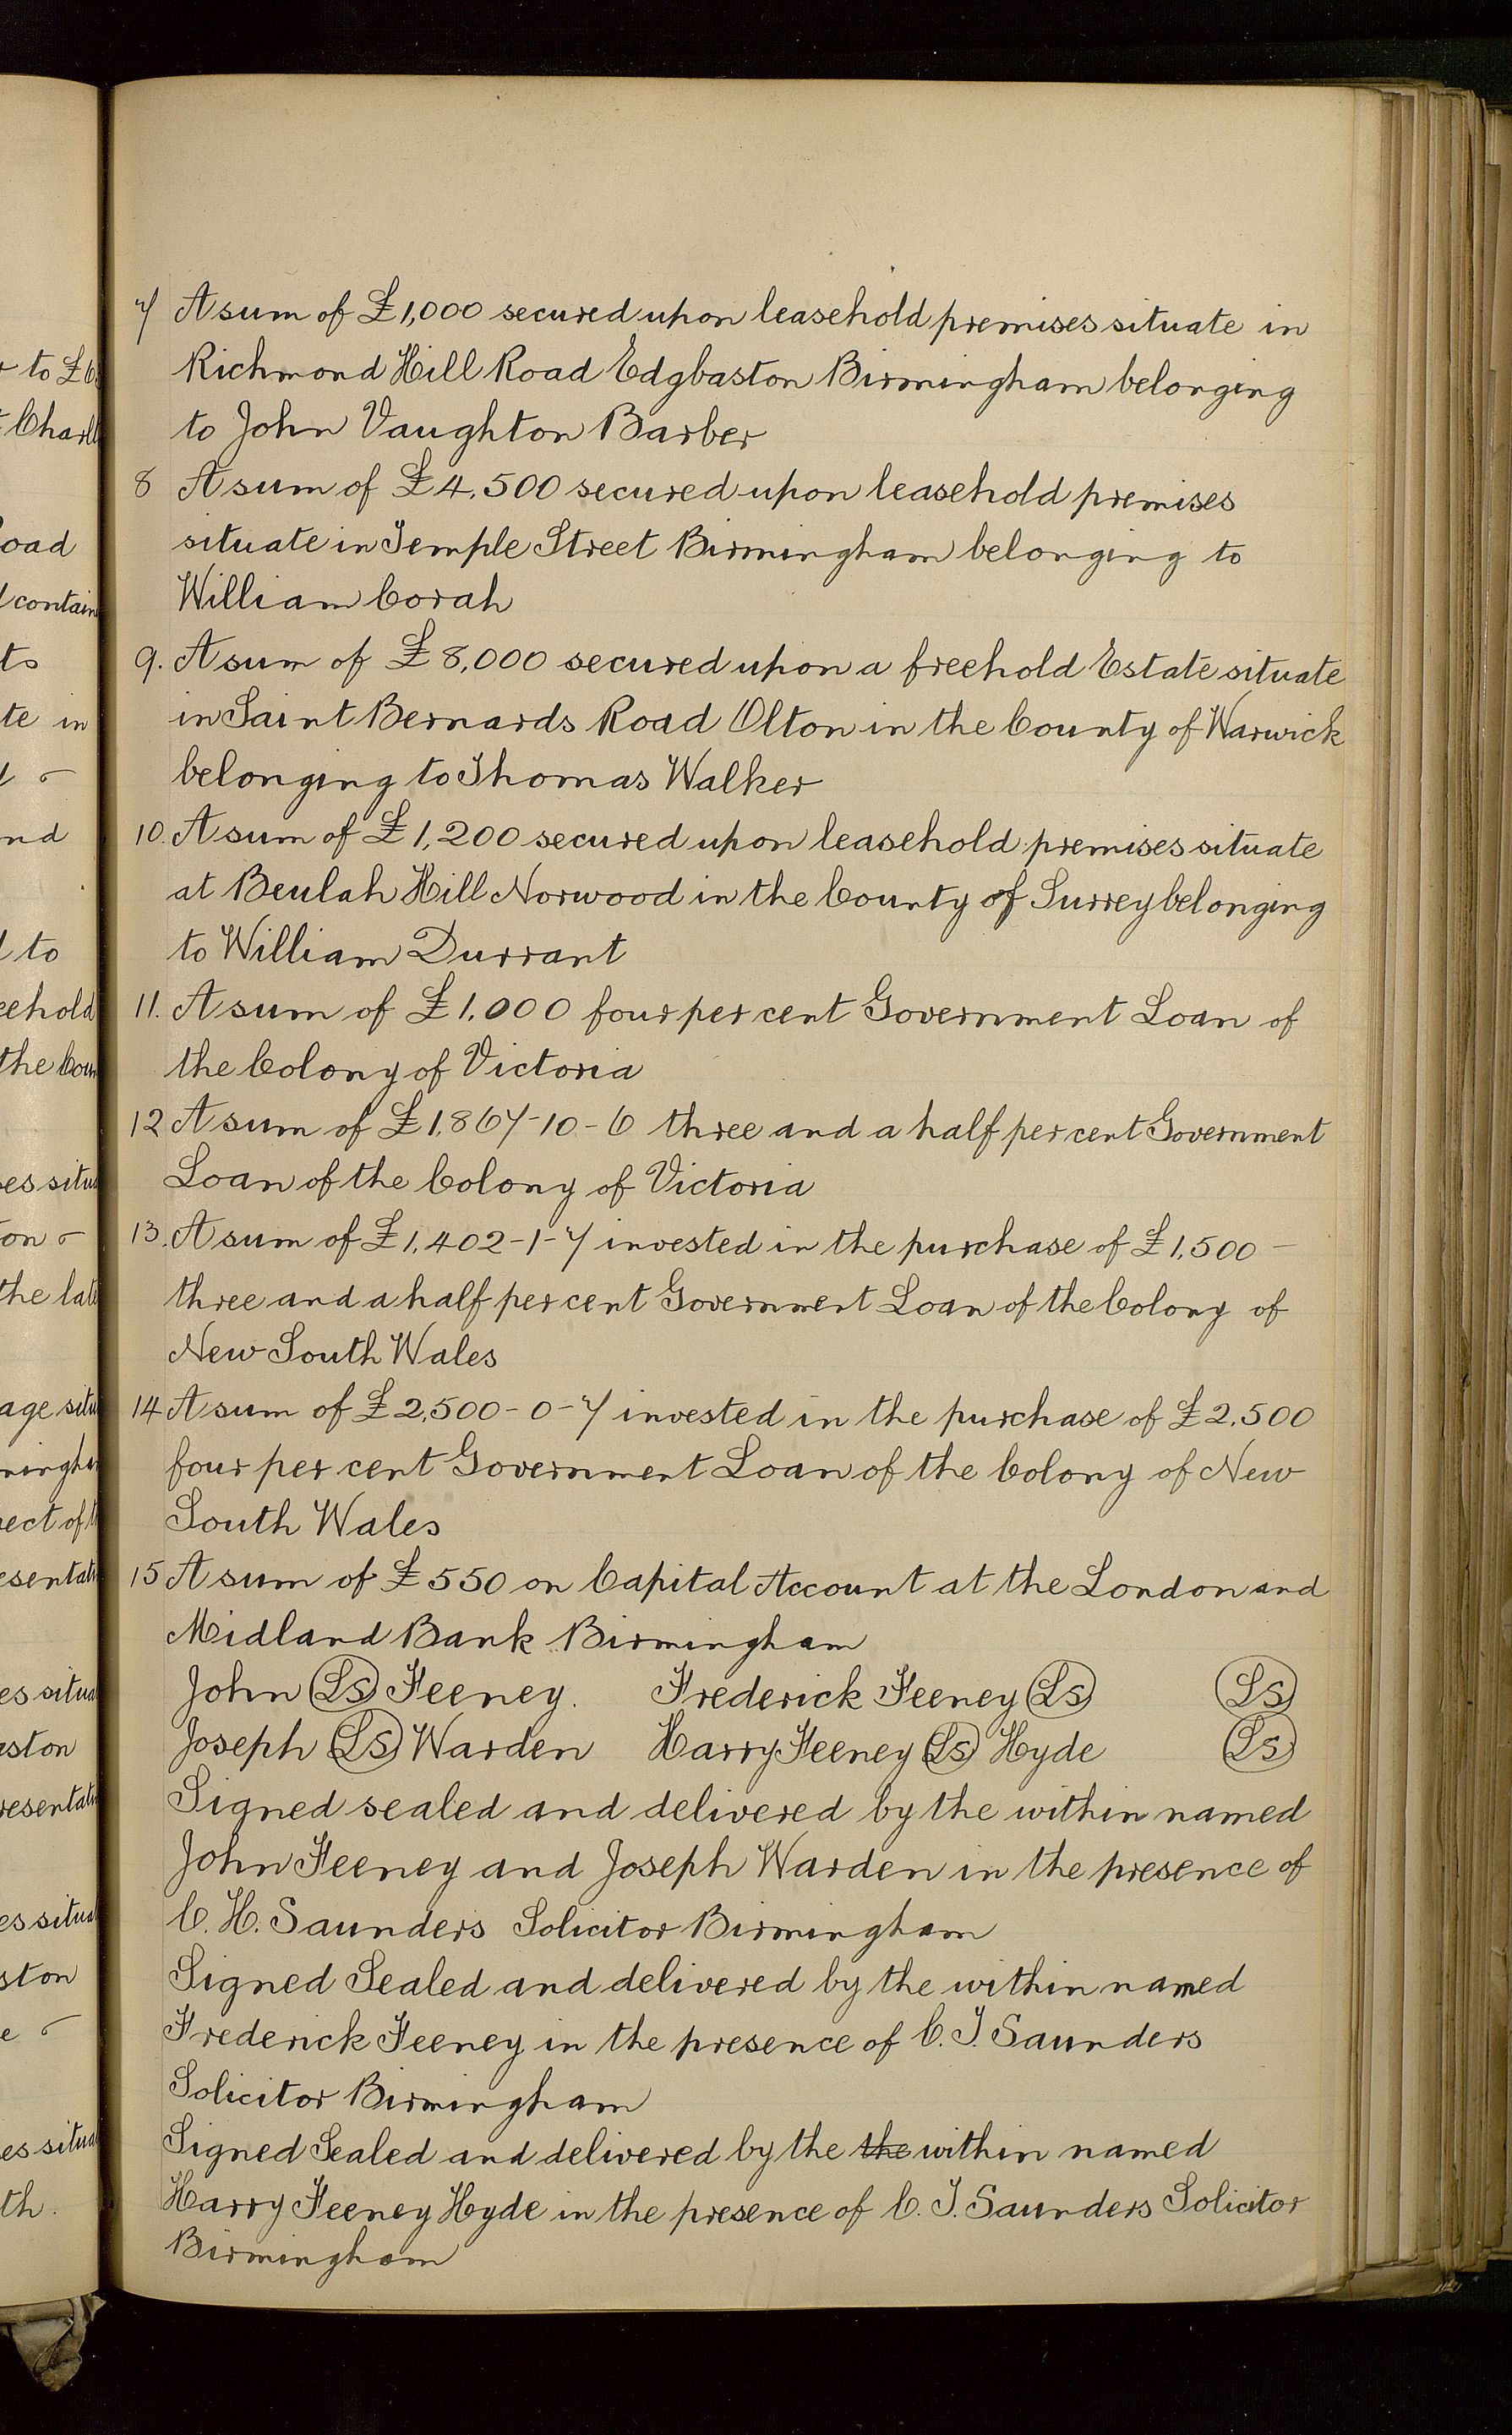 7 A sum of £1,000 secured upon leasehold premises situate in
Richmond Hill Road Edgbaston Birmingham belonging
to John Vaughton Barber
8 A sum of £4,500 secured upon leasehold premises
situate in Temple Street Birmingham belonging to
William Corah
9. A sum of £8,000 secured upon a freehold Estate situate
in Saint Bernards Road Olton in the County of Warwick
belonging to Thomas Walker
10. A sum of £1,200 secured upon leasehold premises situate
at Beulah Hill Norwood in the County of Surrey belonging
to William Durrant
11. A sum of £1,000 four per cent Government Loan of
the Colony of Victoria
12 A sum of £1,867-10-6 three and a half per cent Government
Loan of the Colony of Victoria
13. A sum of £1,402-1-7 invested in the purchase of £1,500 -
three and a half per cent Government Loan of the Colony of
New South Wales
14 A sum of £2,500-0-7 invested in the purchase of £2,500
four per cent Government Loan of the Colony of New
South Wales
15 A sum of £550 on Capital Account at the London and
Midland Bank Birmingham
John LS Feeney. Frederick Feeney LS LS
Joseph LS Warden Harry Feeney LS Hyde LS
Signed sealed and delivered by the within named
John Feeney and Joseph Warden in the presence of
C. H. Saunders Solicitor Birmingham
Signed Sealed and delivered by the within named
Frederick Feeney in the presence of C. T. Saunders
Solicitor Birmingham
Signed Sealed and delivered by the the within named
Harry Feeney Hyde in the presence of C. T. Saunders Solicitor
Birmingham